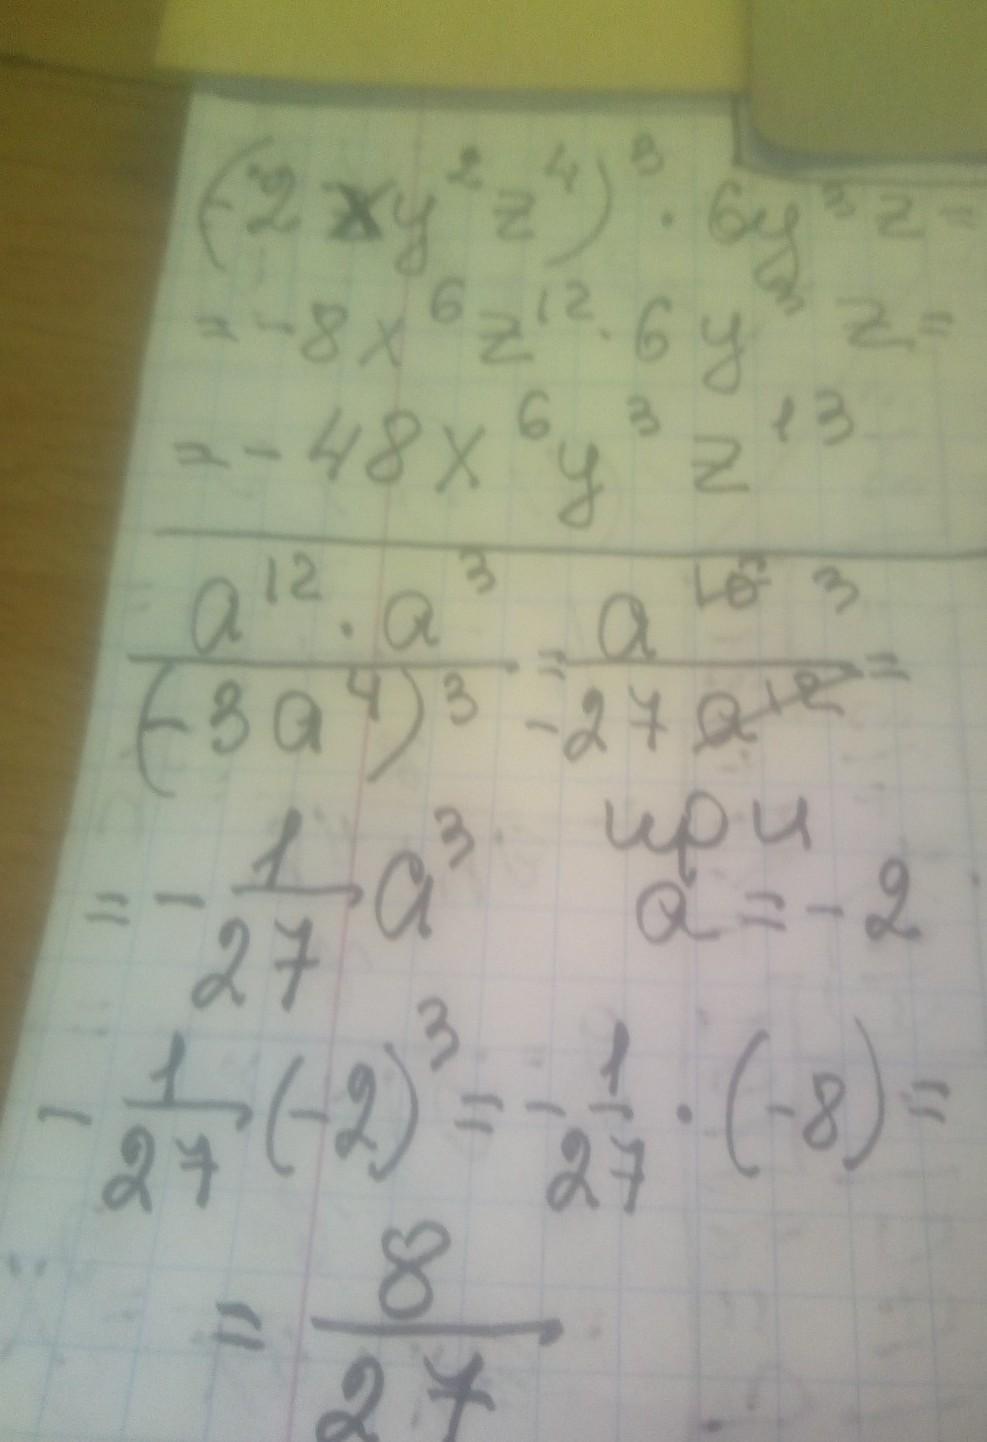 (-2xy²z⁴)³ · 6y³z =
= -8x⁶z¹² · 6y³z =
= -48x⁶y³z¹³
a¹² · a³ / (-3a⁴)³ = a¹⁵ ³ / -27a¹² =
= - 1/27 a³ при
a = -2
- 1/27 (-2)³ = - 1/27 · (-8) =
= 8/27